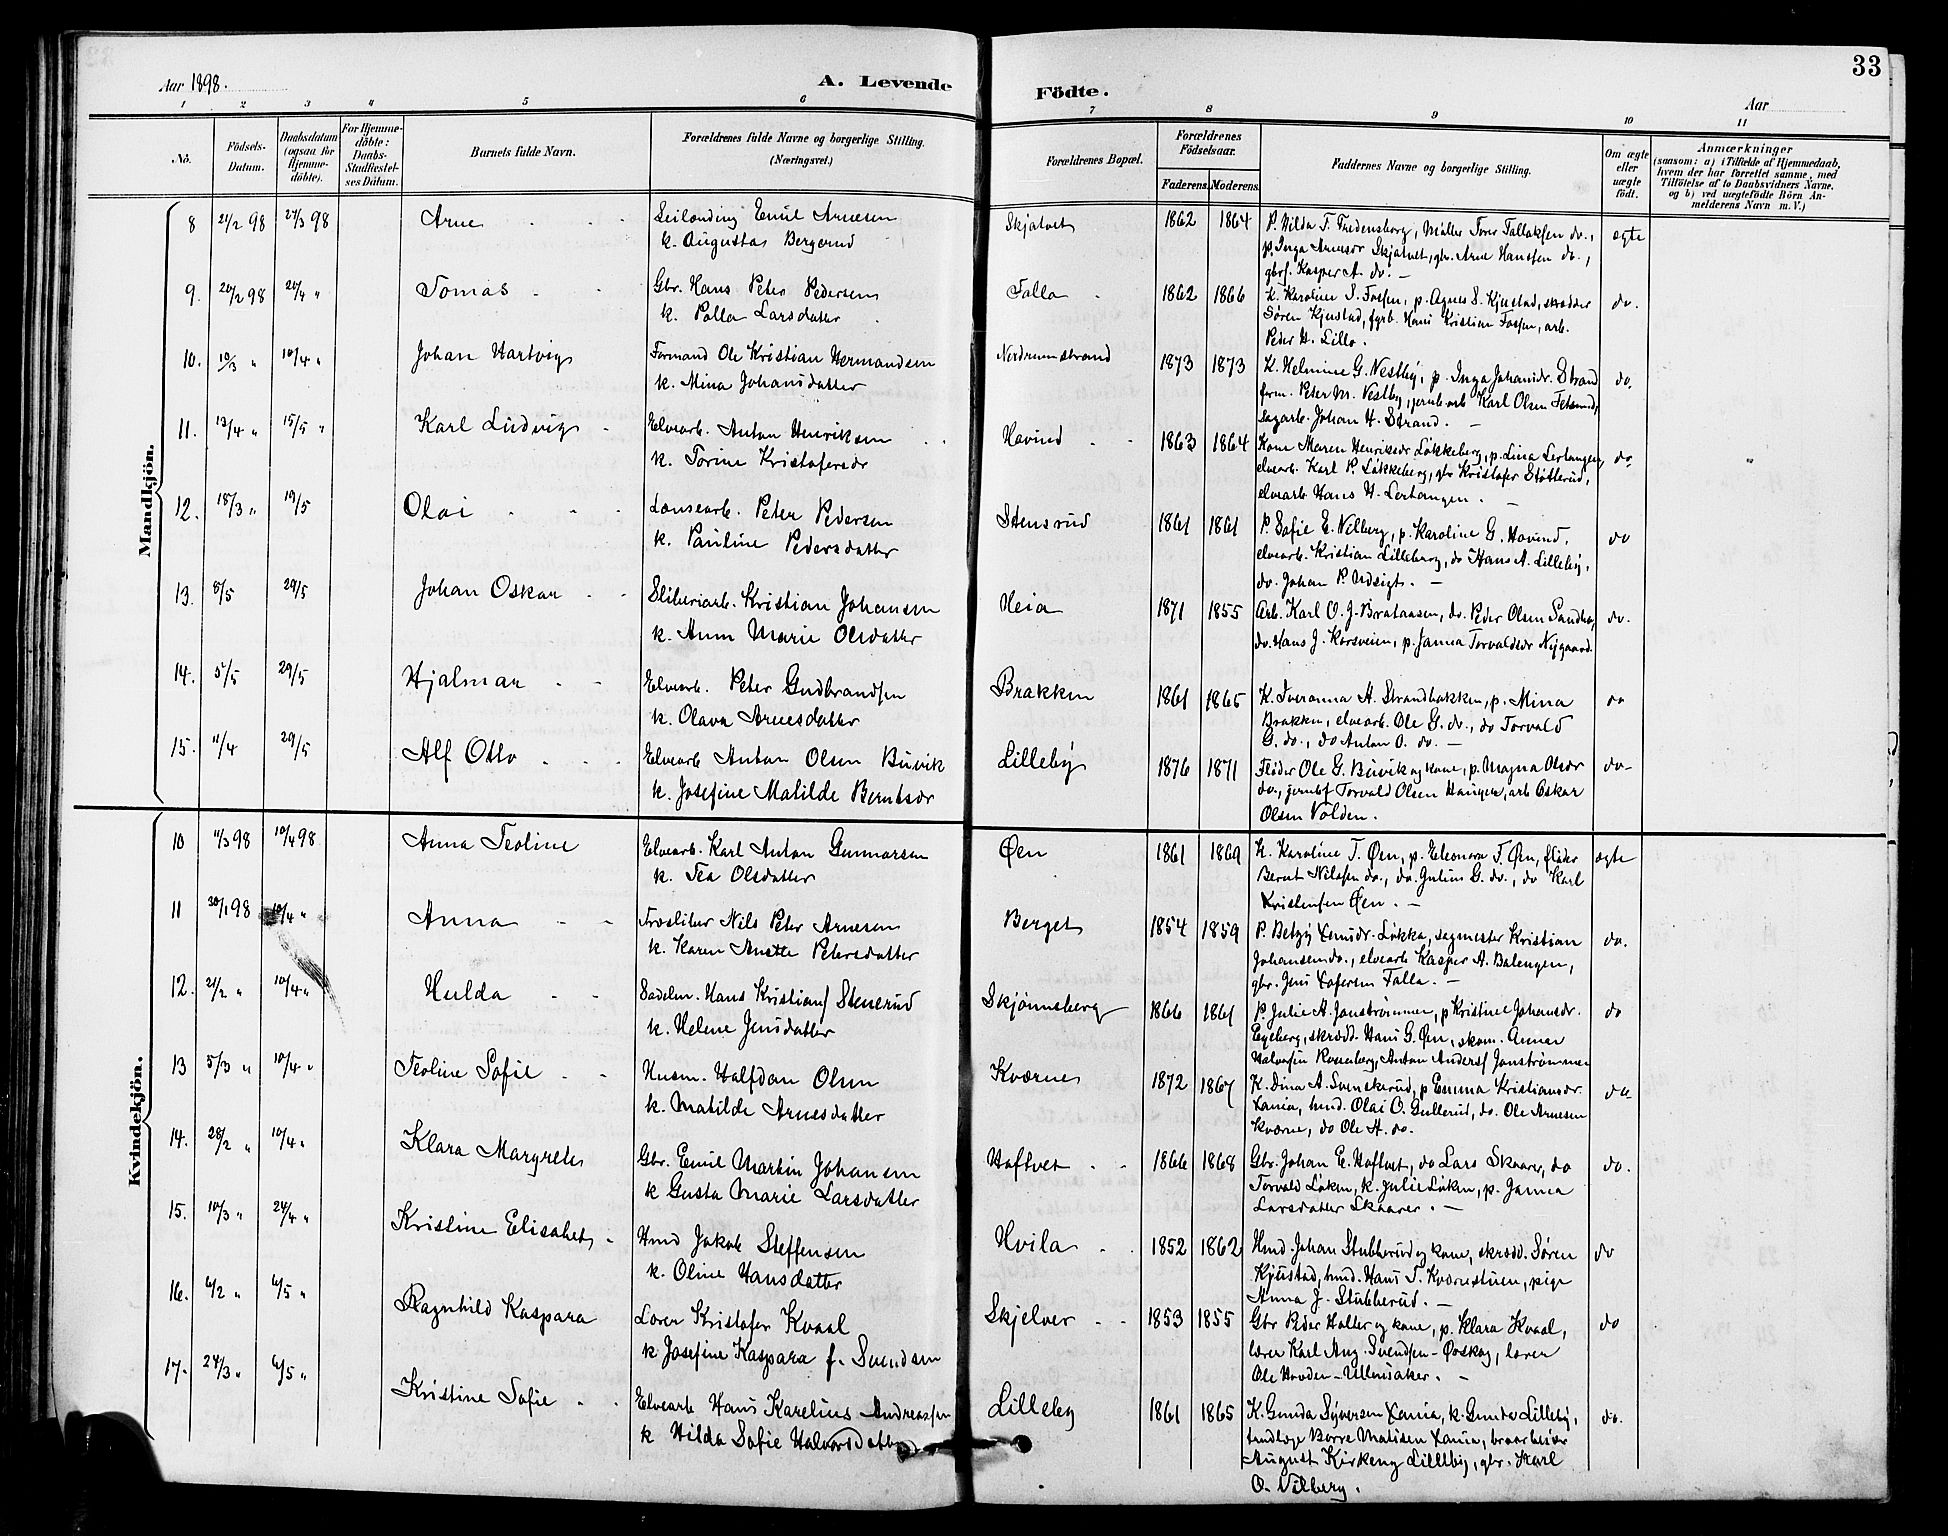 33
Aar 1898.
A. Levende
Födte.
Aar
1 2 3 4 5 6 7 8 9 10 11
No.
Födsels-
Datum.
Daabsdatum
(ogsaa for
Hjemme-
döbte).
For Hjemme-
döbte:
Daabs-
Stadfæstel-
ses Datum.
Barnets fulde Navn.
Forældrenes fulde Navne og borgerlige Stilling.
(Næringsvei.)
Forældrenes Bopæl.
Forældrenes
Födselsaar.
Faderens. Moderens.
Faddernes Navne og borgerlige Stilling.
Om ægte
eller
uægte
födt.
Anmærkninger
(saasom: a) i Tilfælde af Hjemmedaab,
hvem der har forrettet samme, med
Tilföielse af to Daabsvidners Navne,
og b) ved uægtefödte Börn An-
melderens Navn m. V.)
Mandkjön.
8 21/2 98 27/3 98 Arne Emil Arnesen
k. Augusta Bergerud
Skjatvet 1862 1864 P. Hilda T. Fredensborg, Møller Tore Tallaksen do.,
p. Inga Arnesdr Skjatvet, gbr. Arne Hanssen do.,
gbrs. Kasper A. do. —
ægte
9. 20/2 98 20/4 " Tomas Gbr. Hans Peter Pedersen
k. Polla Larsdatter
Falla 1862 1866 K. Karoline S. Fossen, p. Agnes S. Kjustad, skrædder
Søren Kjustad, Hans Kristian Fossen, arb.
Peder H. Lillo.
do.
10. 10/3 " 10/4 " Johan Hartvig Formand Ole Kristian Hermandsen
k. Mina Johansdatter
Nordrumstrand 1873 1873 K. Helmine G. Nestby, p. Inga Johansdr. Strand
form. Peter M. Nestby, jernb.arb Karl Olsen Fetsund,
sagarb. Johan H. Strand. —
do.
11. 13/4 " 15/5 " Karl Ludvig Elvearb. Anton Henriksen
k. Torine Kristofersdr
Hovind 1863 1864 Kone Maren Henriksdr Løkkeberg, p. Lina Lertangen,
elvearb. Karl P. Løkkeberg, gbr Kristofer Støtterud,
elvearb Hans H. Lertangen. —
do.
12. 18/3 " 19/5 Olai Lonsearb. Peter Pedersen
k. Pauline Pedersdatter
Stensrud 1861 1861 P. Sofie E. Nilberg, p. Karoline G. Hovind,
elvearb. Kristian Lilleberg, do Hans A. Lilleby,
do. Johan P. Udsigt. —
do
13. 8/5 29/5 Johan Oskar Sliberiarb. Kristian Johansen
k. Anna Marie Olsdatter
Heia 1871 1855 Arb. Karl O. J. Brataasen, do. Peder Olsen Sandbæ,
do. Hans J. Korsveien, p. Janna Torvaldsdr Nygaard.
do.
14. 5/5 29/5 Hjalmar Elvearb. Peter Gudbrandsen
k. Olava Arnesdatter
Brakken 1861 1865 K. Iveranna A. Strandbakken, p. Mina
Brakken, elvearb. Ole G. do., do Torvald
G. do., do Anton O. do. —
do
15. 11/4 29/5 Alf Otto Elvearb Anton Olsen Buvik
k. Josefine Matilde Berntsdr
Lilleby 1876 1871 Fløder Ole G. Buvik og kone, p. Magna Olsdr
do., jernbf Torvald Olsen Haugen, arb Oskar
Olsen Volden.
do-
Kvindekjön.
10 11/3 98 10/4 98 Anna Teoline Elvearb. Karl Anton Gunnarsen
k. Tea Olsdatter
Øen 1861 1869 K. Karoline T. Øen, p. Eleonora T. Øen, fløder
Bernt Nilssen do., do. Julius G. do., do Karl
Kristensen Øen. —
ægte
11 30/1 98 10/4 " Anna Træsliber Nils Peter Arnesen
k. Karen Anette Petersdatter
Berget 1854 1859 P. Betzy Løkka, sagmester Kristian
Johansen do., elvearb Kasper A. Balengen,
gbr. Jens Falla. —
do.
12. 21/2 " 10/4 " Hulda Sadelm. Hans Kristians Stenerud
k. Helene Jensdatter
Skjønnsberg 1866 1861 P. Julie A. Jonstrømmen, p Kristine Johansdr.
Egeberg, skrædd. Hans G. Øen, skom. Anner
Halvorsen Rosenberg, Anton Anders Jonstrømmen
do
13 5/3 " 10/4 " Teoline Sofie Husm. Halfdan Olsen
k. Matilde Arnesdatter
Kværne 1872 1867 K. Dina A. Svenskerud, p Emma Kristiansdr.
Xania, hmd. Olai O. Gullerud, do. Ole Arnesen
Kværne, do Ole H. do.
do-
14. 28/2 " 10/4 " Klara Margrete Gbr. Emil Martin Johansen
k Gusta Marie Larsdatter
Hoftvet 1866 1868 Gbr. Johan E. Hoftvet, do Lars Skaarer, do
Torvald Løken, k. Julie Løken, p. Janna
Larsdatter Skaarer. —
do.
15. 10/3 " 24/4 " Kristine Elisabet Hmd Jakob Steffensen
k. Oline Hansdatter
Hvila 1852 1862 Hmd. Johan Stubberud og kone, skrædd. Søren
Kjustad, hmd. Hans T. Kværnestuen, pige
Anna J. Stubberud. —
do
16. 6/2 " 6/5 " Ragnhild Kaspara Lærer Kristofer Kvaal
k Josefine Kaspara f. Svendsen
Skjelver 1853 1855 Gbr Peder Holter og kone, p. Klara Kvaal,
lærer Karl Aug. Svendsen - Ørskog, lærer
Ole Hovden - Ullensaker. —
do
17. 24/3 " 6/5 " Kristine Sofie Elvearb Hans Karelius Andreassen
k Hilda Sofie Halvorsdatter
Lilleby 1861 1865 K. Gunda Syversen Xania, k. Gunda Lilleby,
tandlæge Borre Matisen Xania,
August Kirkeng Lilleby, gbr. Karl
O. Nilberg.
do.